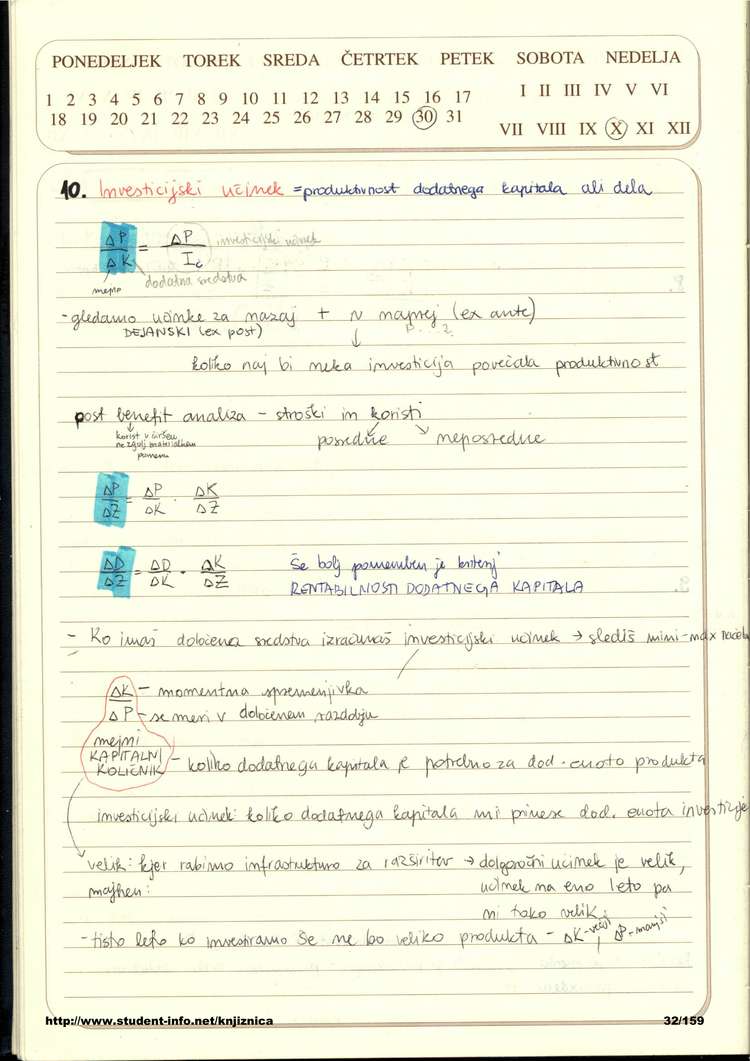 PONEDELJEK TOREK SREDA ČETRTEK PETEK SOBOTA NEDELJA
1 2 3 4 5 6 7 8 9 10 11 12 13 14 15 16 17
I II III IV V VI
18 19 20 21 22 23 24 25 26 27 28 29 30 31
VII VIII IX X XI XII
10. Investicijski učinek = produktivnost dodatnega kapitala ali dela
ΔP/ΔK = ΔP/I investicijski učinek
mejno dodatna sredstva
- gledamo učinke za nazaj + v naprej (ex ante)
DEJANSKI (ex post)
↓
koliko naj bi neka investicija povečala produktivnost
post benefit analiza - stroški in koristi
↓ korist v širšem ne zgolj materialnem pomenu
posredne neposredne
ΔP/ΔZ = ΔP/ΔK · ΔK/ΔZ
ΔD/ΔZ = ΔD/ΔK · ΔK/ΔZ
Še bolj pomemben je kriterij
RENTABILNOSTI DODATNEGA KAPITALA
- Ko imaš določena sredstva izračunaš investicijski učinek → slediš mini-max
ΔK - momentna spremenjivka
ΔP - se meri v določenem razdobju
mejni
KAPITALNI
KOLIČNIK - koliko dodatnega kapitala je potrebno za dod. enoto produkta
investicijski učinek: koliko dodatnega kapitala mi prinese dod. enota investicije
velik: kjer rabimo infrastrukturo za razširitev → dolgoročni učinek je velik,
majhen: učinek na eno leto pa
ni tako velik.
- tisto leto ko investiramo še ne bo veliko produkta - ΔK - večji, ΔP - manjši
http://www.student-info.net/knjiznica
32/159